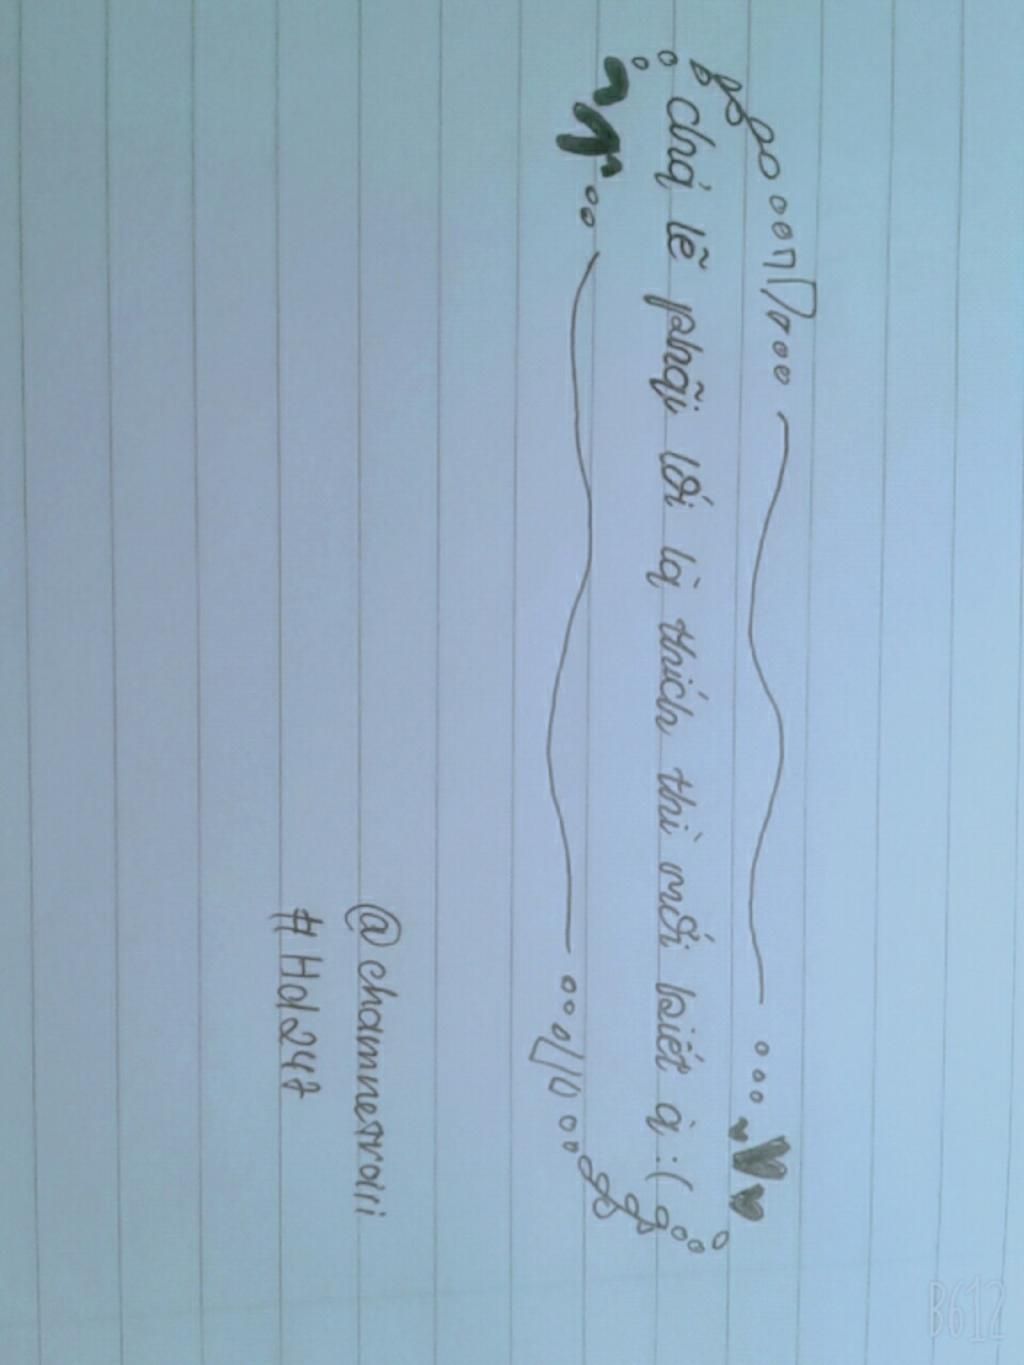 chả lẽ phãi lói là thích thì mới biết à :(
@chamnetroiii
#Hd247
B612